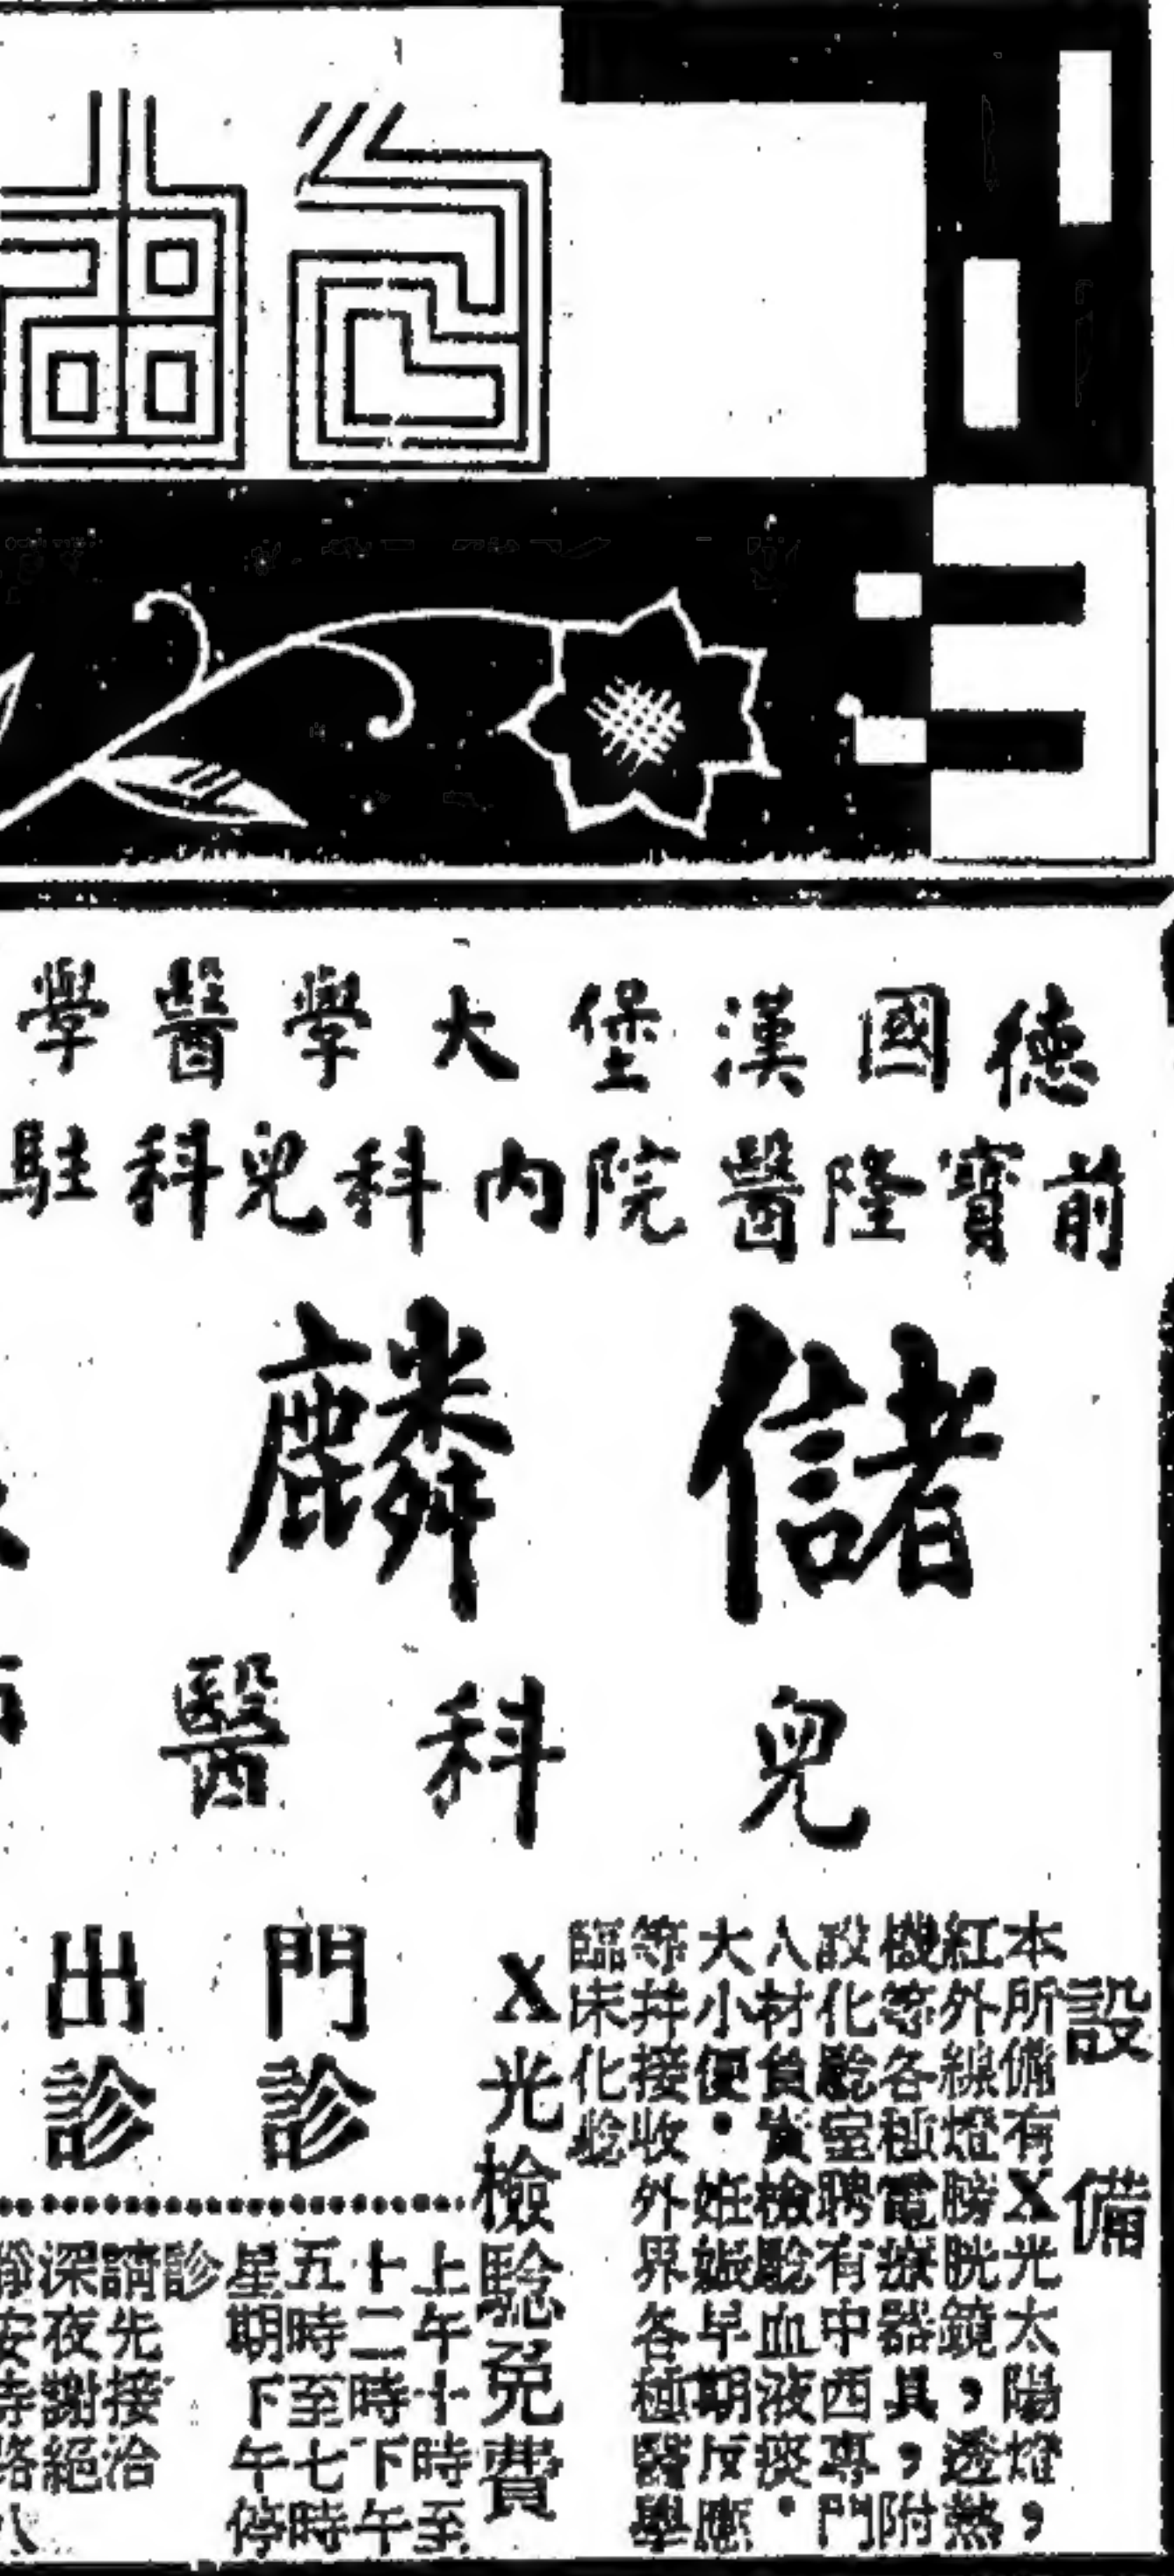 德國漢堡大學醫學
前寶隆醫院內科兒科駐
儲麟
兒科醫
設備
本所備有X光太陽燈，
紅外線燈膀胱鏡，透熱
機等各種電療器具，附
設化驗室聘有中西專門
人材負責檢驗血液痰．
大小便．妊娠早期反應
等幷接收外界各種醫學
臨床化驗
X光檢驗免費
門診
上午十時至
十二時下午
五時至七時
星期下午停
診
出診
請先接洽
深夜謝絕
靜安寺路八